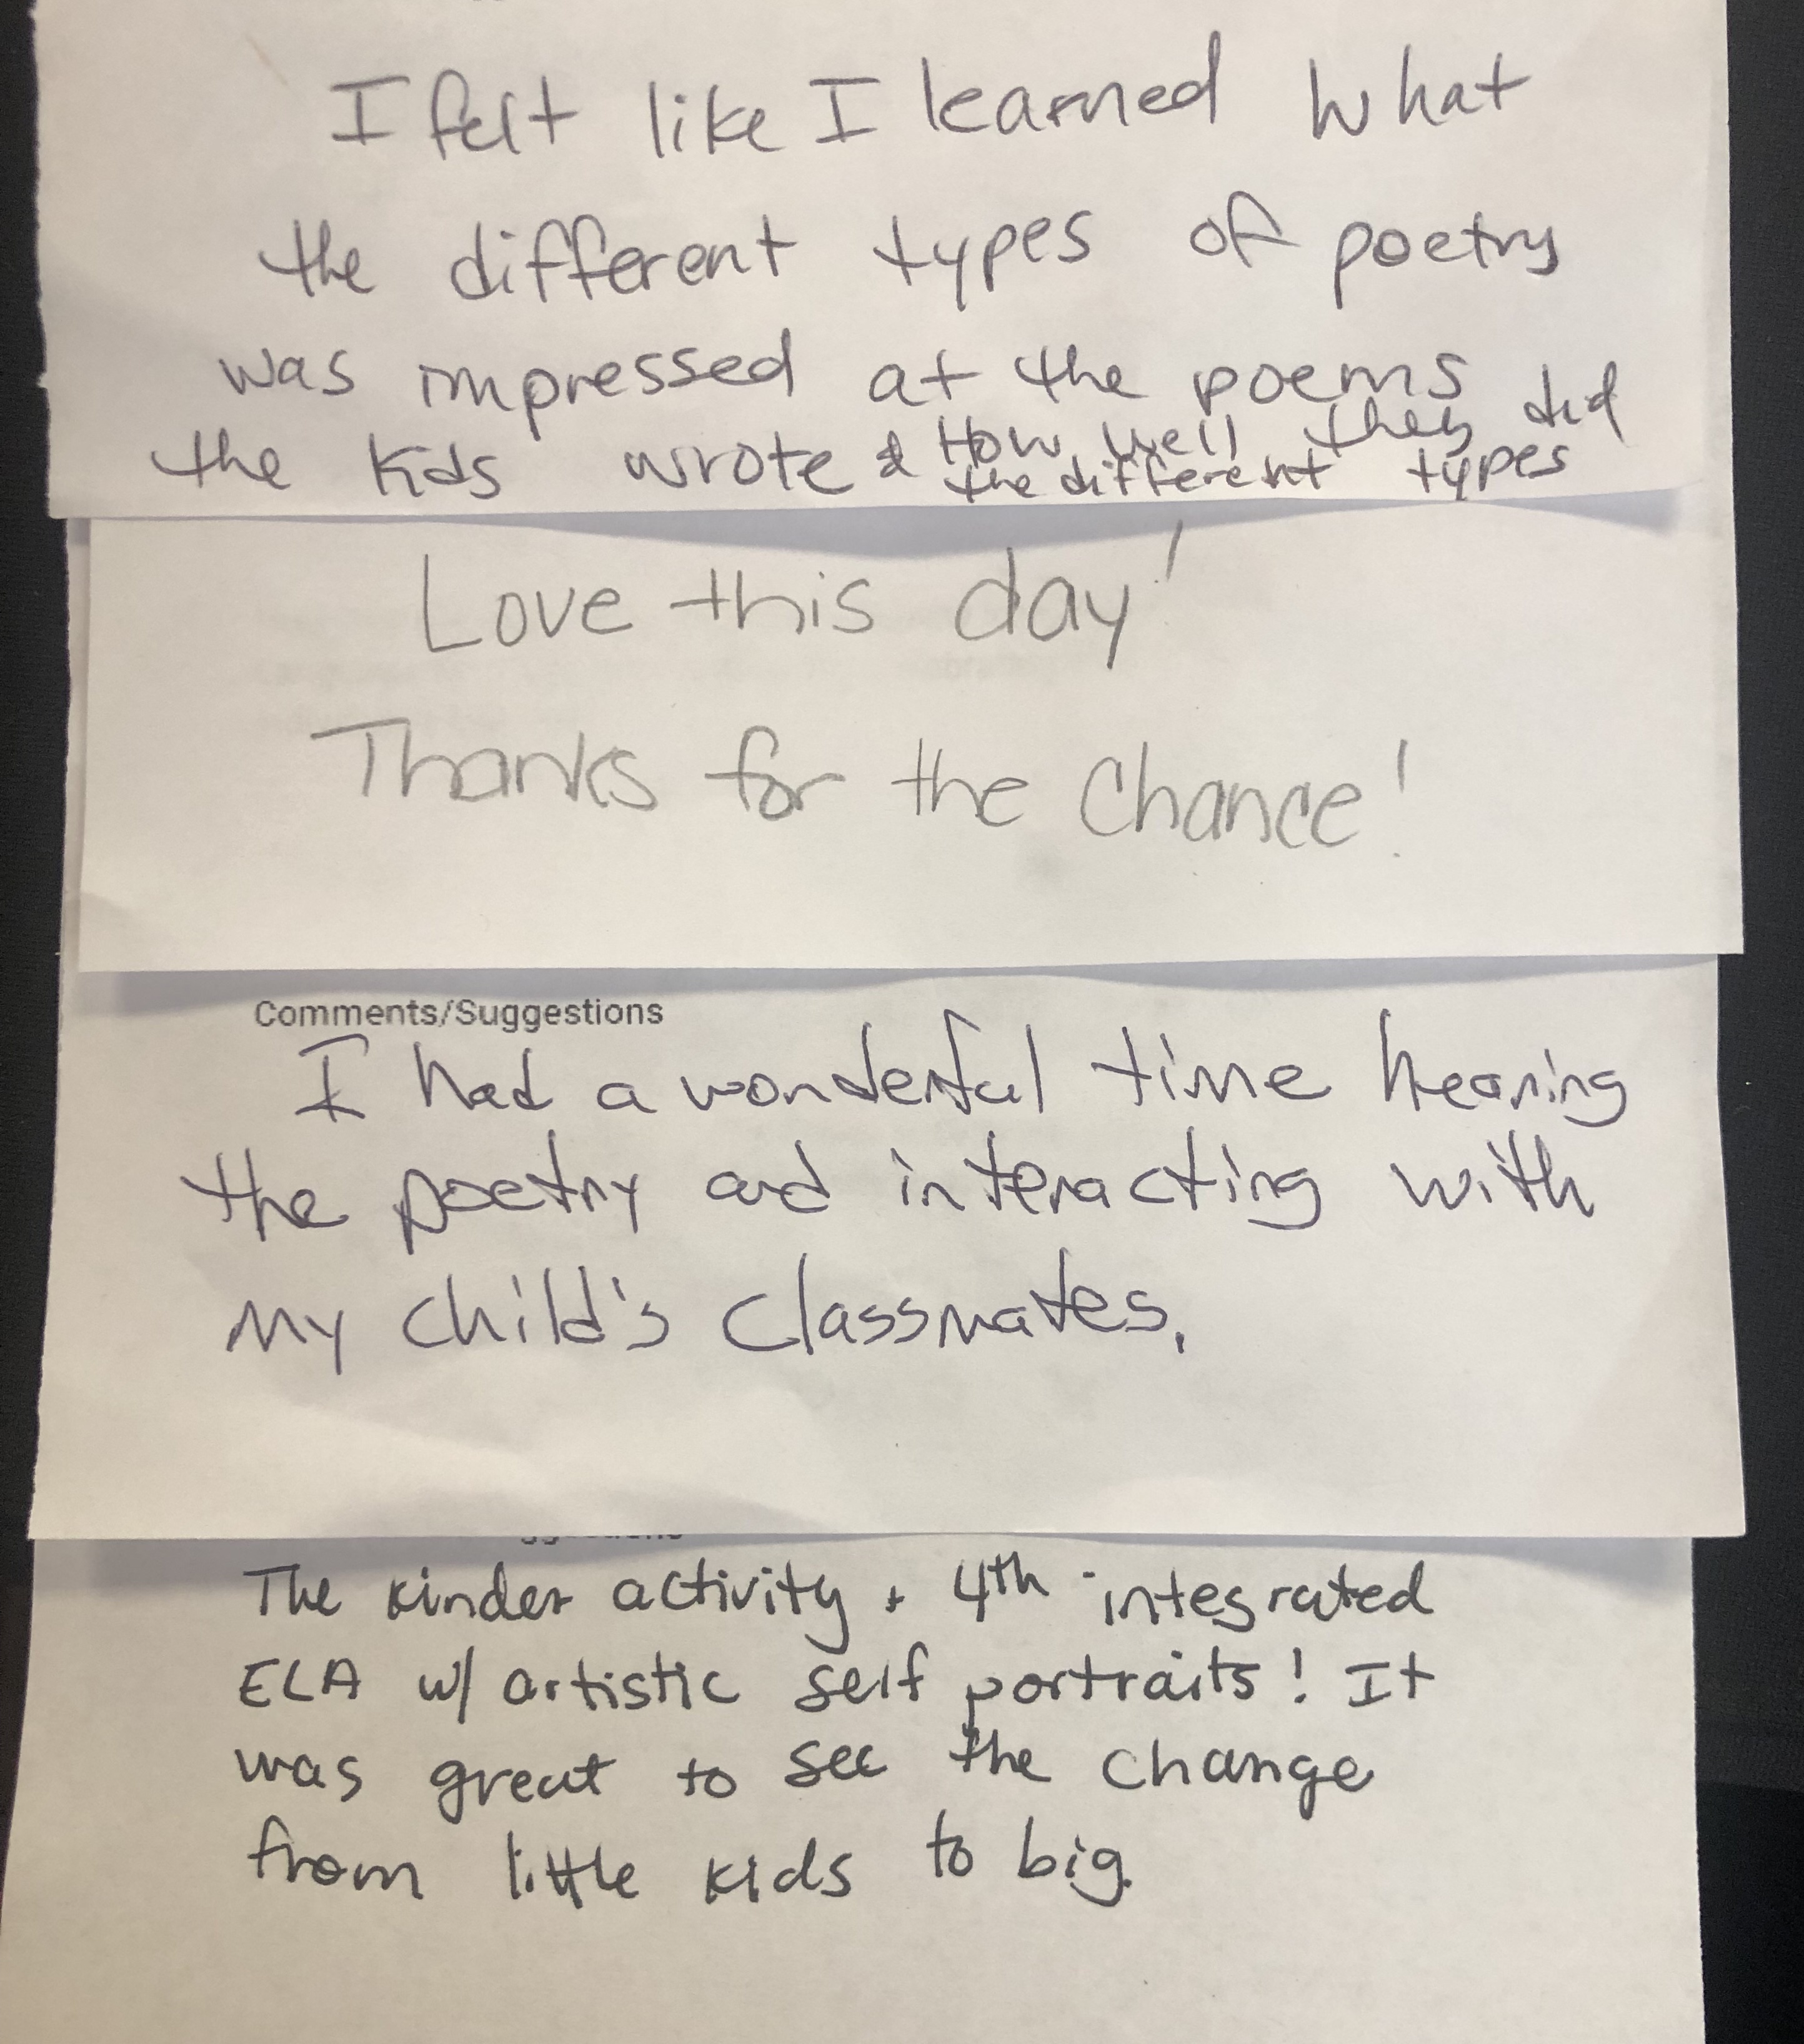 I felt like I learned what
the different types of poetry
was impressed at the poems
the kids wrote & How well they did
the different types
Love this day!
Thanks for the Chance!
Comments/Suggestions
I had a wonderful time hearing
the poetry and interacting with
my child's classmates.
The kinder activity + 4th integrated
ELA w/ artistic self portraits! It
was great to see the change
from little kids to big.